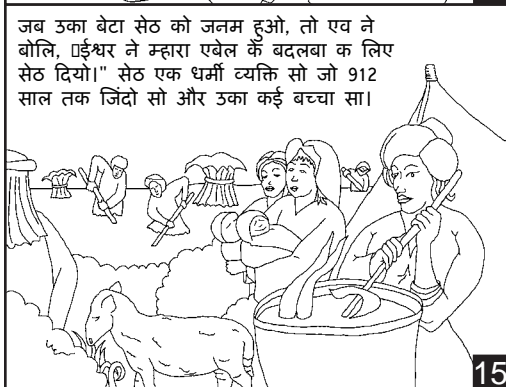 जब उका बेटा सेठ को जनम हुओ, तो एव ने
बोलि, ईश्वर ने म्हारा एबेल के बदलबा क लिए
सेठ दियो।" सेठ एक धर्मी व्यक्ति सो जो 912
साल तक जिंदो सो और उका कई बच्चा सा।
15